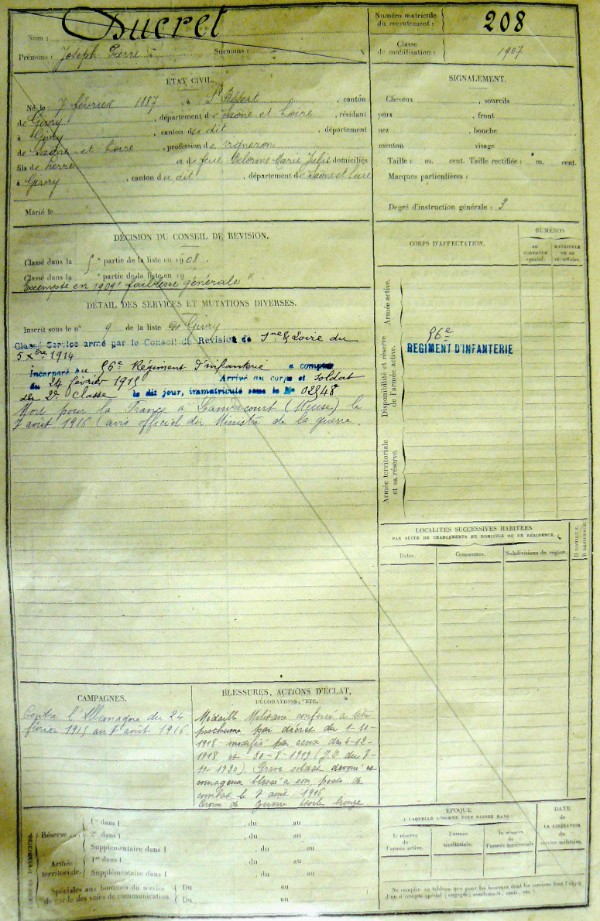 Nom : Ducret
Prénoms : Joseph Pierre Surnoms :
Numéro matricule du recrutement : 208
Classe de mobilisation : 1907
ÉTAT CIVIL.
Né le 7 février 1887 à St Désert, canton
de Givry, département de Saône et Loire, résidant
à Givry, canton du dit, département
de Saône et Loire, profession de vigneron
fils de Pierre et de feue Delorme Marie domiciliés
à Givry, canton du dit, département de Saône et Loire
Marié le
SIGNALEMENT.
Cheveux , sourcils
yeux , front
nez , bouche
menton visage
Taille : m. cent. Taille rectifiée : m. cent.
Marques particulières :
Degré d'instruction générale : 2
DÉCISION DU CONSEIL DE RÉVISION.
Classé dans la partie de la liste en 1908.
Classé dans la " partie de la liste en 19
Exempté en 1908 faiblesse générale
DÉTAIL DES SERVICES ET MUTATIONS DIVERSES.
Inscrit sous le n° 9 de la liste de Givry
Classé Service armé par le Conseil de Révision de Sne & Loire du
1914
Incorporé au 56e Régiment d'infanterie à compter
du 24 février 1915 Arrivé au corps et soldat
de 2e classe le dit jour, immatriculé sous le No
Mort pour la France à (Meuse) le
7 août 1916 (avis officiel du Ministre de la guerre.
CORPS D'AFFECTATION.
NUMÉROS
AU CONTRÔLE spécial.
MATRICULE
Armée active.
Disponibilité et réserve de l'armée active.
Armée territoriale et sa réserve.
56e
RÉGIMENT D'INFANTERIE
LOCALITÉS SUCCESSIVES HABITÉES
PAR SUITE DE CHANGEMENTS DE DOMICILE OU DE RÉSIDENCE.
Dates. Communes. Subdivisions de région.
CAMPAGNES.
Contre l'Allemagne du 24
février 1915 au 7 août 1916
BLESSURES, ACTIONS D'ÉCLAT,
DÉCORATIONS, ETC.
Médaille Militaire conférée à titre
posthume par décret du 1-10-
1918 modifié par ceux des
1918 et 1919 (J.O. du
1920). Brave soldat
blessé à son poste de
combat le 7 août 1916
Croix de Guerre étoile
Réserve
Armée territoriale.
1re dans l , du au
2e dans l , du au
Supplémentaire dans l , du au
1re dans l , du au
Supplémentaire dans l , du au
Spéciales aux hommes du service
de garde des voies de communication
Du au
Du au
ÉPOQUE
À LAQUELLE L'HOMME DOIT PASSER DANS :
la réserve de l'armée active.
l'armée territoriale.
la réserve de l'armée territoriale.
DATE
DE LA LIBÉRATION
du service militaire.